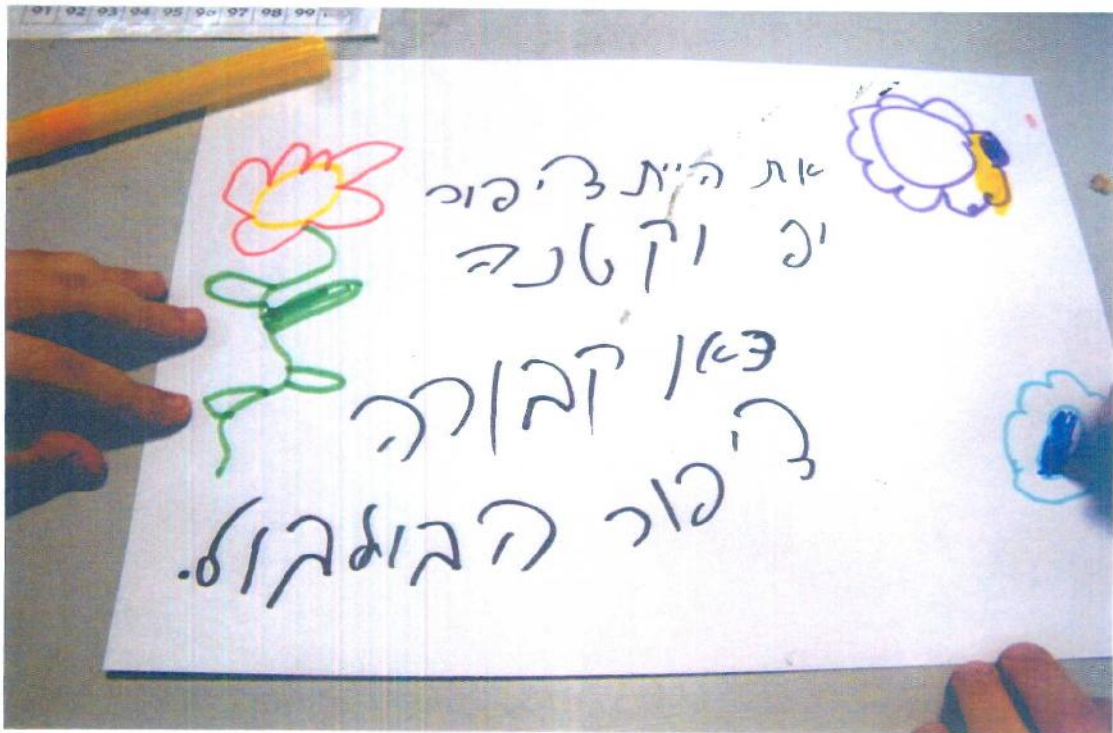 91 92 93 94 95 96 97 98 99
את היית ציפור
יפ וקטנה
כאן קבורה
ציפור הבולבול.